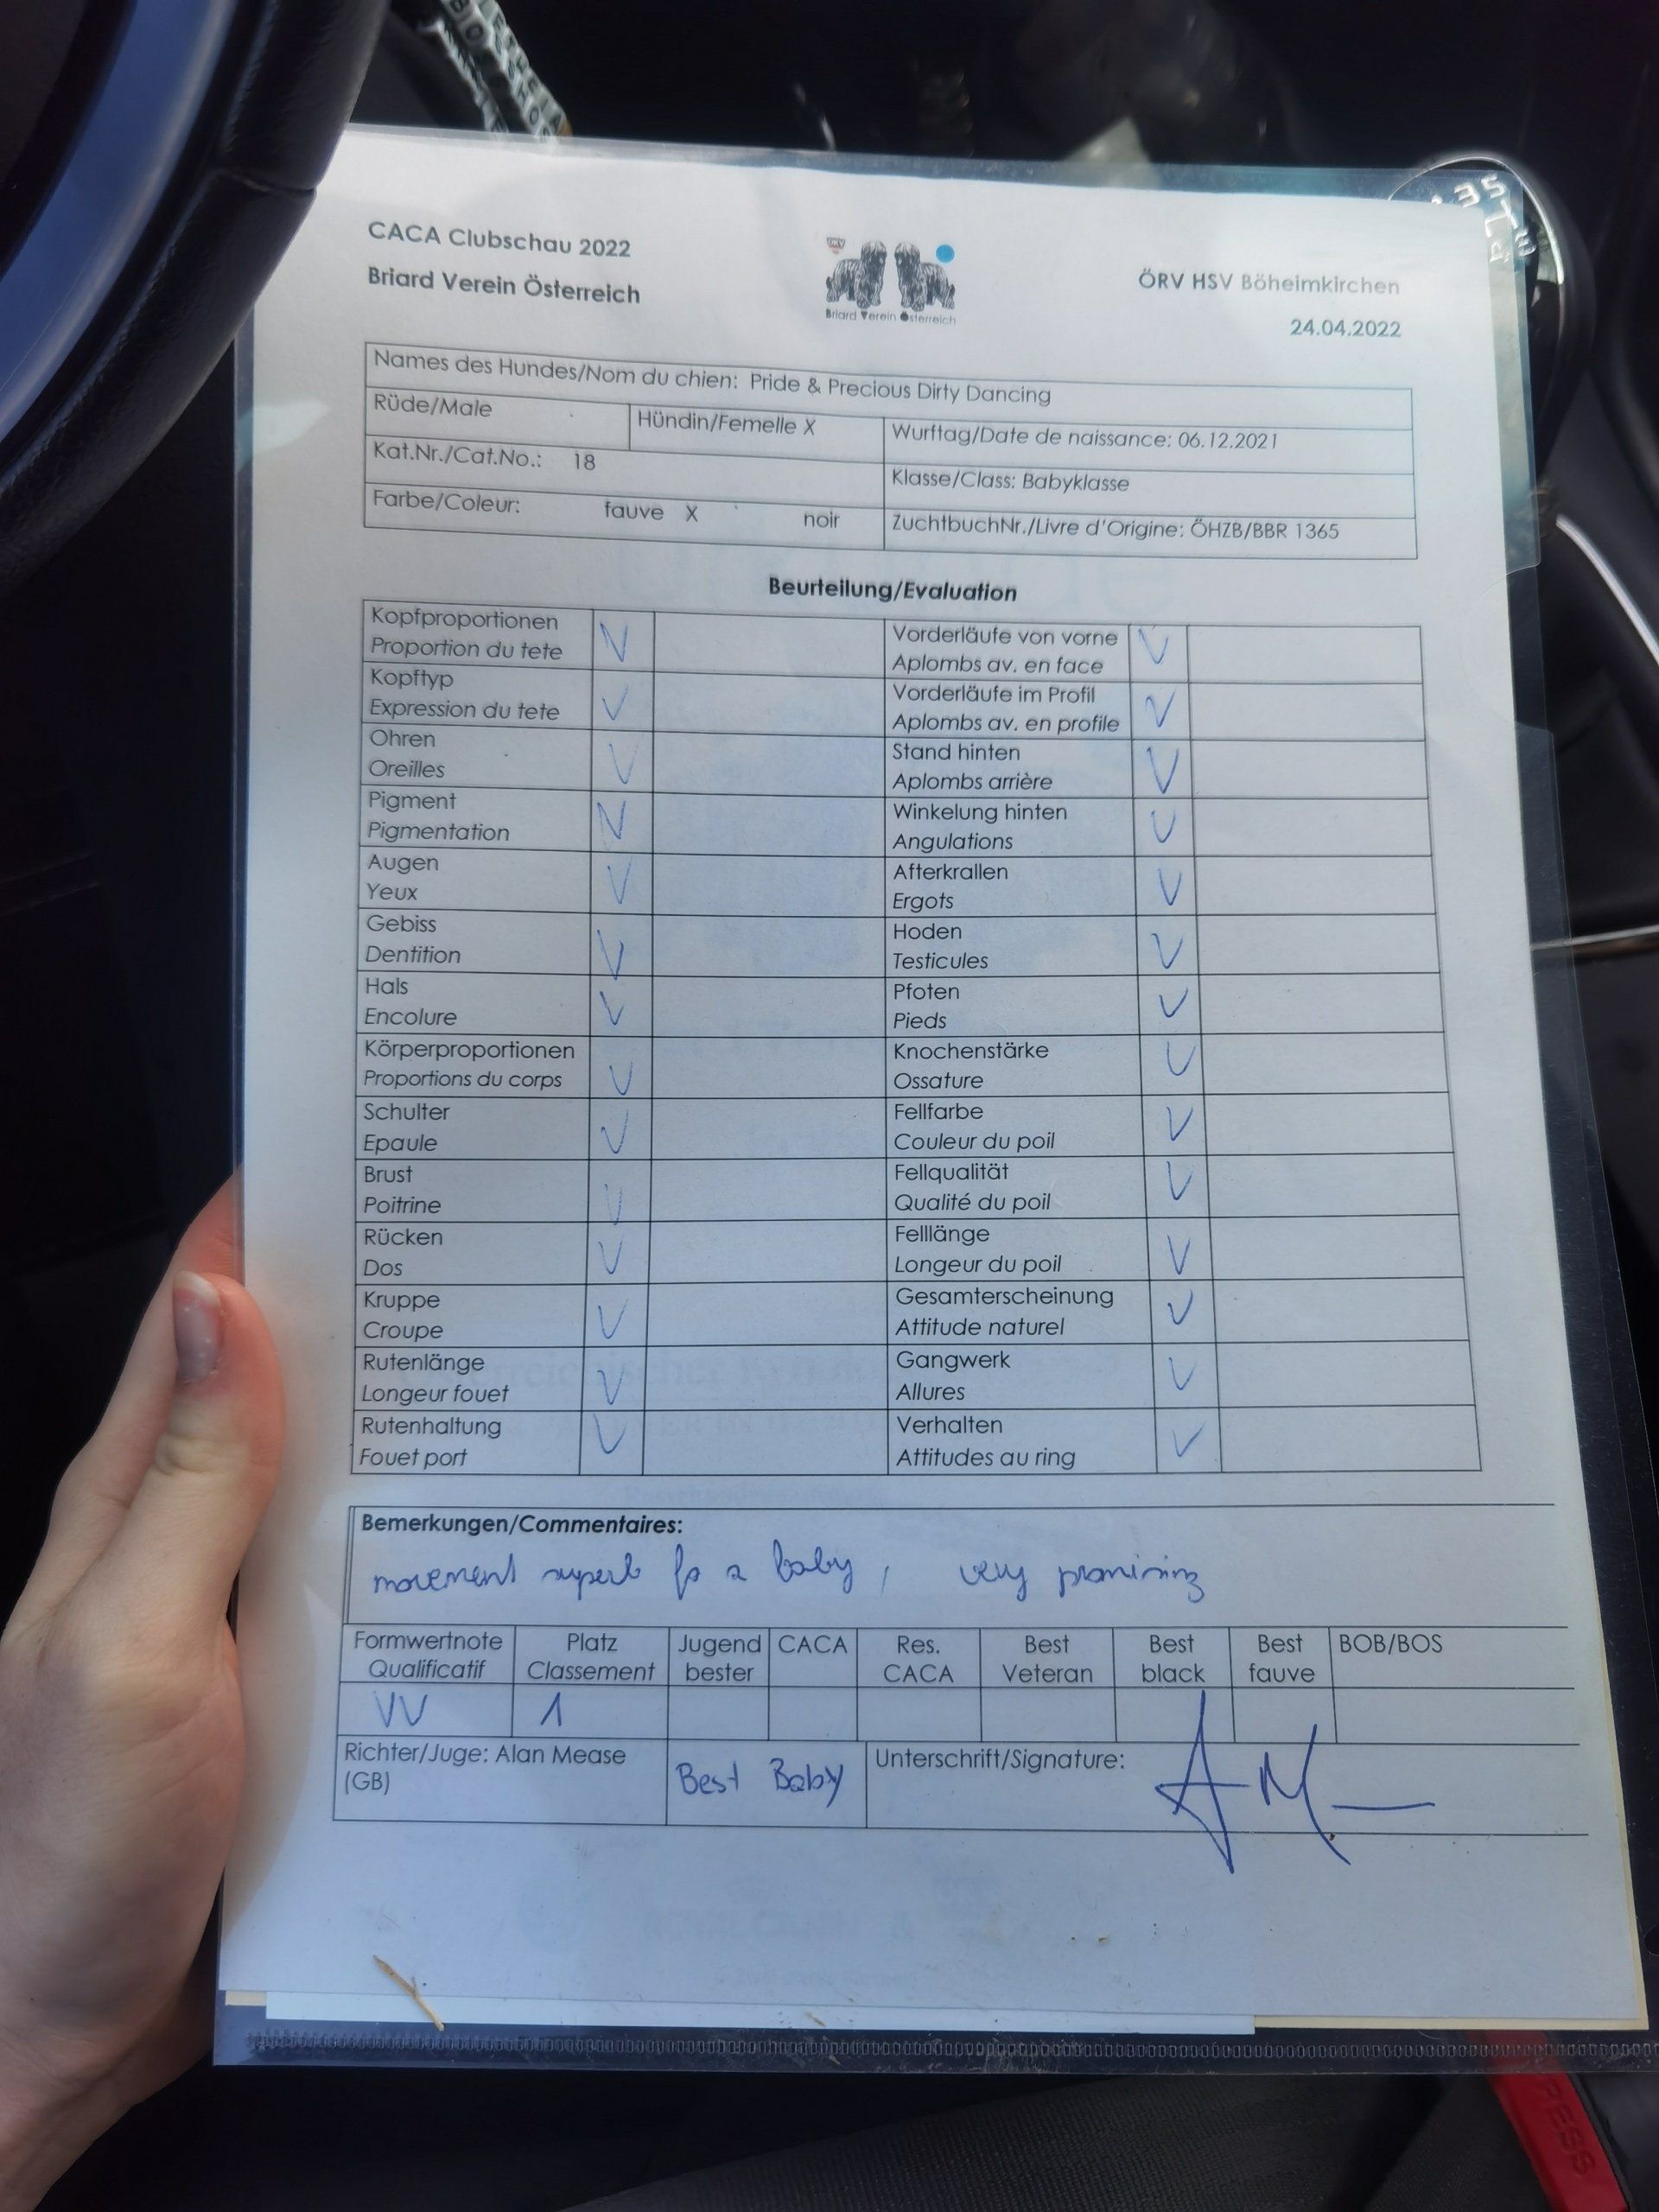 CACA Clubschau 2022
Briard Verein Österreich
ÖRV
Briard Verein Österreich
ÖRV HSV Böheimkirchen
24.04.2022
Names des Hundes/Nom du chien: Pride & Precious Dirty Dancing
Rüde/Male
Hündin/Femelle X
Wurftag/Date de naissance: 06.12.2021
Kat.Nr./Cat.No.: 18
Klasse/Class: Babyklasse
Farbe/Coleur: fauve X noir
ZuchtbuchNr./Livre d'Origine: ÖHZB/BBR 1365
Beurteilung/Evaluation
Kopfproportionen V
Proportion du tete
Vorderläufe von vorne V
Aplombs av. en face
Kopftyp V
Expression du tete
Vorderläufe im Profil V
Aplombs av. en profile
Ohren V
Oreilles
Stand hinten V
Aplombs arrière
Pigment V
Pigmentation
Winkelung hinten V
Angulations
Augen V
Yeux
Afterkrallen V
Ergots
Gebiss V
Dentition
Hoden V
Testicules
Hals V
Encolure
Pfoten V
Pieds
Körperproportionen V
Proportions du corps
Knochenstärke V
Ossature
Schulter V
Epaule
Fellfarbe V
Couleur du poil
Brust V
Poitrine
Fellqualität V
Qualité du poil
Rücken V
Dos
Felllänge V
Longeur du poil
Kruppe V
Croupe
Gesamterscheinung V
Attitude naturel
Rutenlänge V
Longeur fouet
Gangwerk V
Allures
Rutenhaltung V
Fouet port
Verhalten V
Attitudes au ring
Bemerkungen/Commentaires:
movement superb fo a baby, very promising
Formwertnote
Qualificatif
Platz
Classement
Jugend
bester
CACA
Res.
CACA
Best
Veteran
Best
black
Best
fauve
BOB/BOS
VV
1
Richter/Juge: Alan Mease
(GB)
Best Baby
Unterschrift/Signature:
AM
PRESS